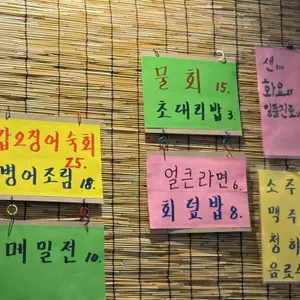 갑오징어숙회
25.
병어조림 18.
메밀전 10.
물회 15.
초대리밥 3.
얼큰라면 6.
회덮밥 8.
센
화요 25
일품진로
소주
맥주
청하
음료수